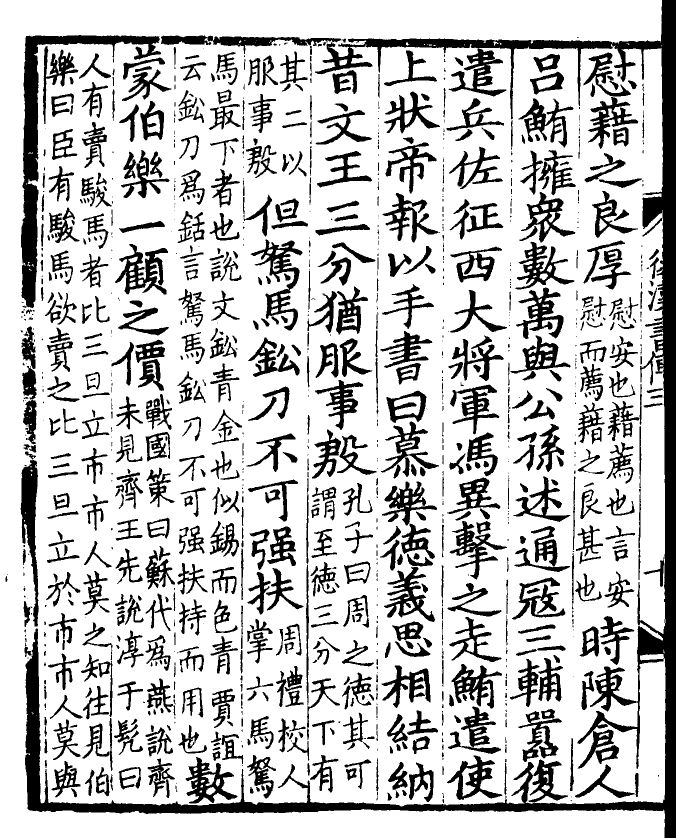 後漢書傳三
慰藉之良厚慰安也藉薦也言安慰而薦藉之良甚也時陳倉人
呂鮪擁衆數萬與公孫述通冦三輔囂復
遣兵佐征西大將軍馮異擊之走鮪遣使
上狀帝報以手書曰慕樂徳義思相結納
昔文王三分猶服事殷孔子曰周之徳其可謂至徳三分天下有
其二以服事殷但駑馬鈆刀不可强扶周禮校人掌六馬駑
馬最下者也說文鈆青金也似錫而色青賈誼云鈆刀爲銛言駑馬鈆刀不可强扶持而用也數
蒙伯樂一顧之價戰國策曰蘇代爲燕說齊未見齊王先說淳于髡曰
人有賣駿馬者比三旦立市市人莫之知往見伯樂曰臣有駿馬欲賣之比三旦立於市市人莫與